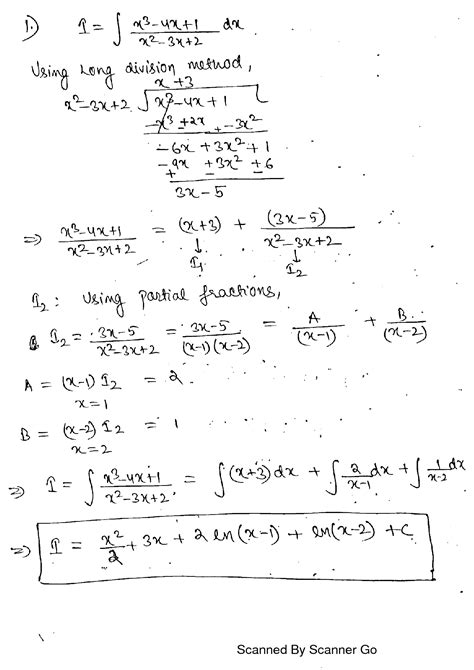 1.) I = ∫ (x³-4x+1)/(x²-3x+2) dx
Using Long division method,
x+3
x²-3x+2 √ x³-4x+1
-x³ +2x + -3x²
-6x +3x² + 1
-9x +3x² +6
+ - -
3x-5
⇒ (x³-4x+1)/(x²-3x+2) = (x+3) + (3x-5)/(x²-3x+2)
↓ ↓
I₁ I₂
I₂: Using partial fractions,
I₂ = (3x-5)/(x²-3x+2) = (3x-5)/((x-1)(x-2)) = A/(x-1) + B/(x-2)
A = (x-1) I₂ = 2
x=1
B = (x-2) I₂ = 1
x=2
⇒ I = ∫ (x³-4x+1)/(x²-3x+2) = ∫(x+3)dx + ∫ 2/(x-1) dx + ∫ 1/(x-2) dx
⇒ I = x²/2 + 3x + 2 ln(x-1) + ln(x-2) + C
Scanned By Scanner Go